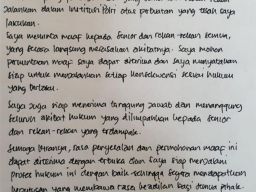 Jalankan dalam Institusi Polri atas perbuatan yang telah saya
lakukan.
Saya meminta maaf kepada Senior dan rekan-rekan semua,
yang secara langsung merasakan akibatnya. Saya mohon
permintaan maaf saya dapat diterima dan saya menyatakan
siap untuk menjalankan setiap konsekuensi sesuai hukum
yang berlaku.
Saya juga siap menerima tanggung jawab dan menanggung
seluruh akibat hukum yang dilimpahkan kepada senior
dan rekan-rekan yang terdampak.
Semoga kiranya, rasa penyesalan dan permohonan maaf ini
dapat diterima dengan terbuka dan saya siap menjalani
proses hukum ini dengan baik sehingga segera mendapatkan
keputusan yang membawa rasa keadilan bagi semua pihak.